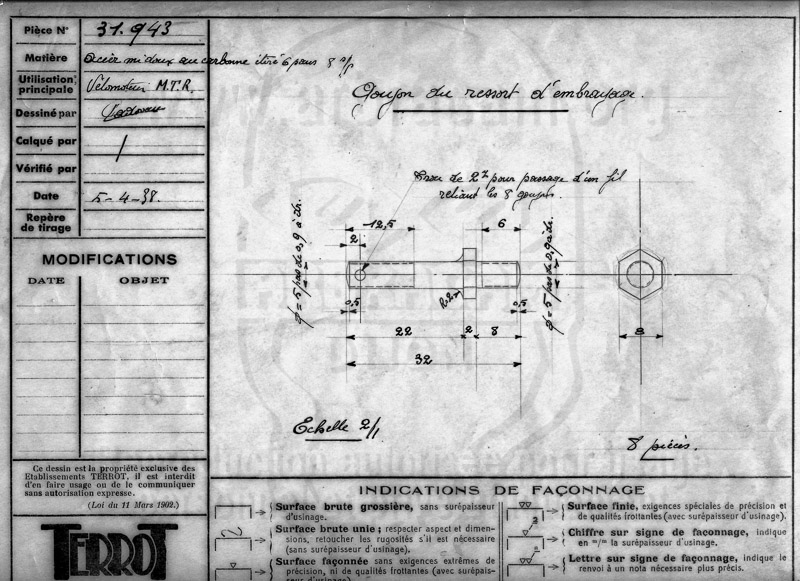 Pièce N° 31.943
Matière Acier mi doux au carbone étiré 6 pans 8 s/p
Utilisation principale Vélomoteur M.T.R.
Dessiné par
Calqué par /
Vérifié par
Date 5-4-38.
Repère de tirage
MODIFICATIONS
DATE OBJET
Goujon du ressort d'embrayage.
Trou de 2 pour passage d'un fil
reliant les 8 goujons.
12,5
6
2
ø = 5 pas de 0,9 à dr.
ø = 5 pas de 0,9 à dr.
0,5
0,5
22
2
8
32
8
Echelle 2/1
8 pièces.
Ce dessin est la propriété exclusive des
Etablissements TERROT, il est interdit
d'en faire usage ou de le communiquer
sans autorisation expresse.
(Loi du 11 Mars 1902.)
TERROT
INDICATIONS DE FAÇONNAGE
Surface brute grossière, sans surépaisseur
d'usinage.
Surface brute unie; respecter aspect et dimen-
sions, retoucher les rugosités s'il est nécessaire
(sans surépaisseur d'usinage).
Surface façonnée sans exigences extrêmes de
précision, ni de qualités frottantes (avec surépais-
seur d'usinage).
Surface finie, exigences spéciales de précision et
de qualités frottantes (avec surépaisseur d'usinage).
Chiffre sur signe de faconnage, indique
en =/= la surépaisseur d'usinage.
Lettre sur signe de façonnage, indique le
renvoi à un nota nécessaire plus précis.